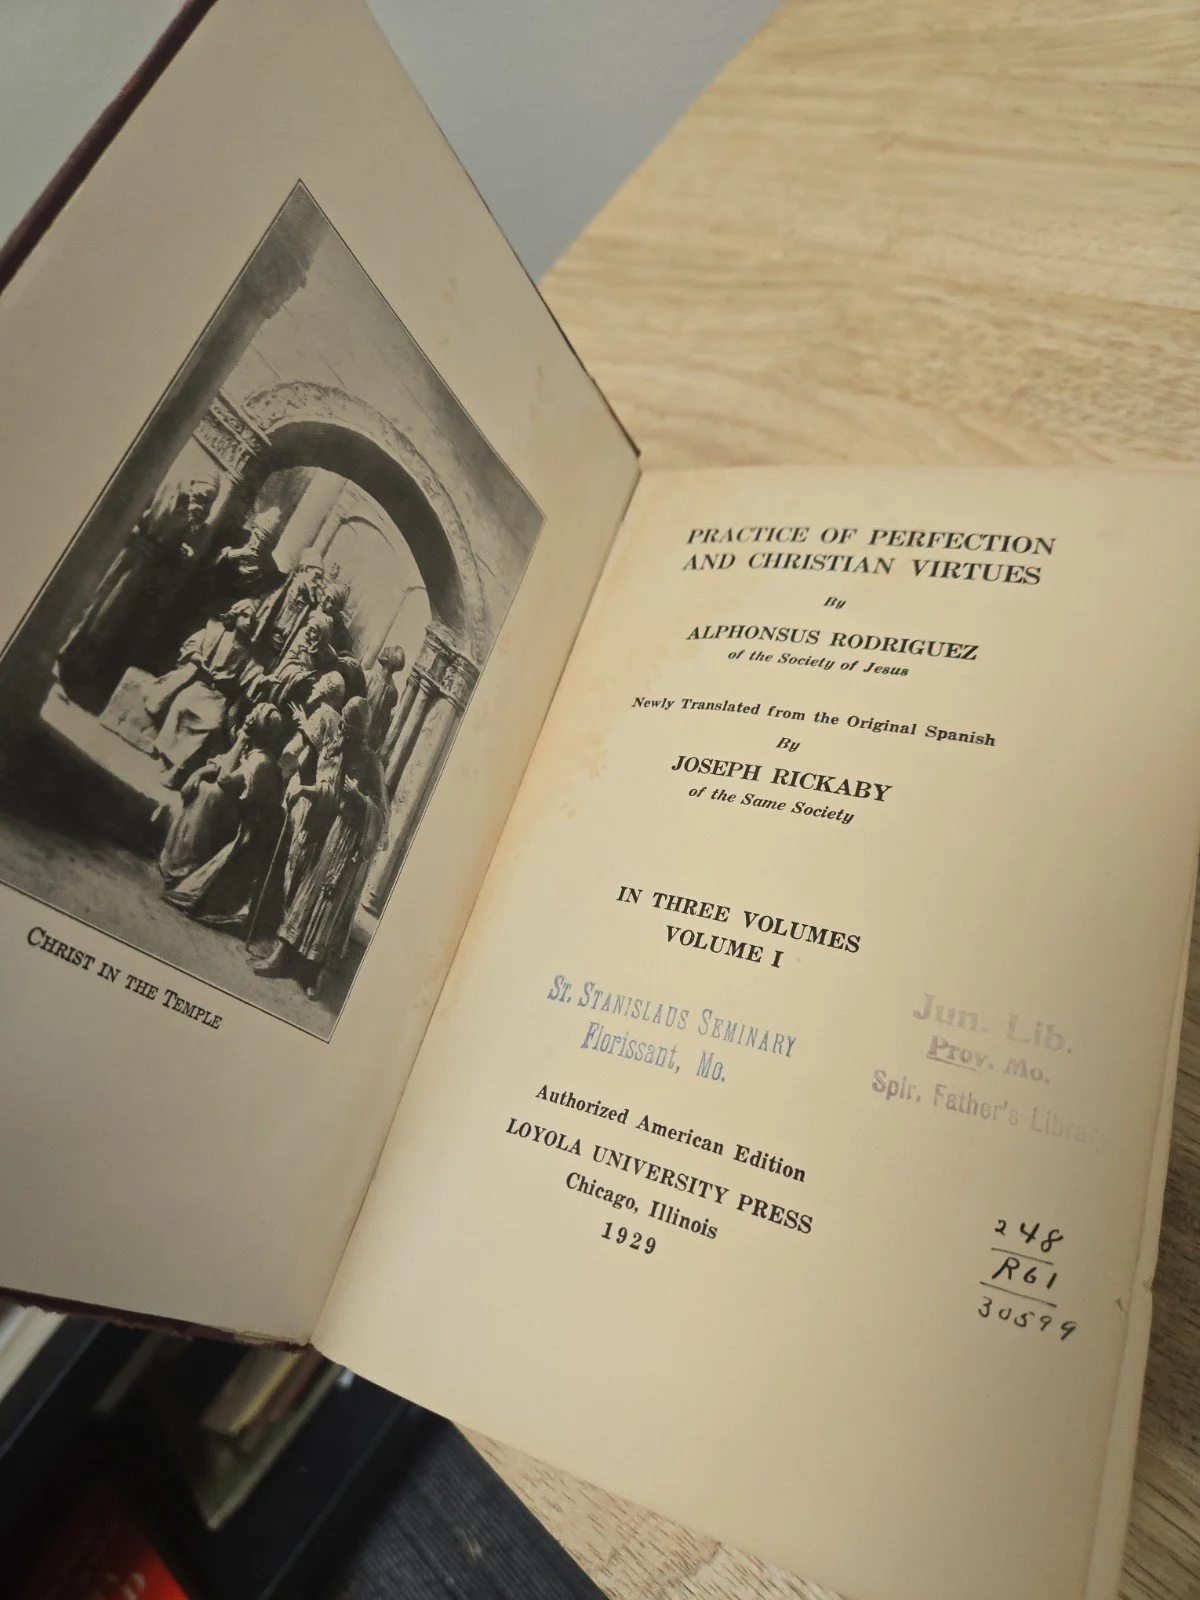 CHRIST IN THE TEMPLE
PRACTICE OF PERFECTION
AND CHRISTIAN VIRTUES
By
ALPHONSUS RODRIGUEZ
of the Society of Jesus
Newly Translated from the Original Spanish
By
JOSEPH RICKABY
of the Same Society
IN THREE VOLUMES
VOLUME I
ST. STANISLAUS SEMINARY
Florissant, Mo.
Jun. Lib.
Prov. Mo.
Spir. Father's Library
Authorized American Edition
LOYOLA UNIVERSITY PRESS
Chicago, Illinois
1929
248
R61
30599